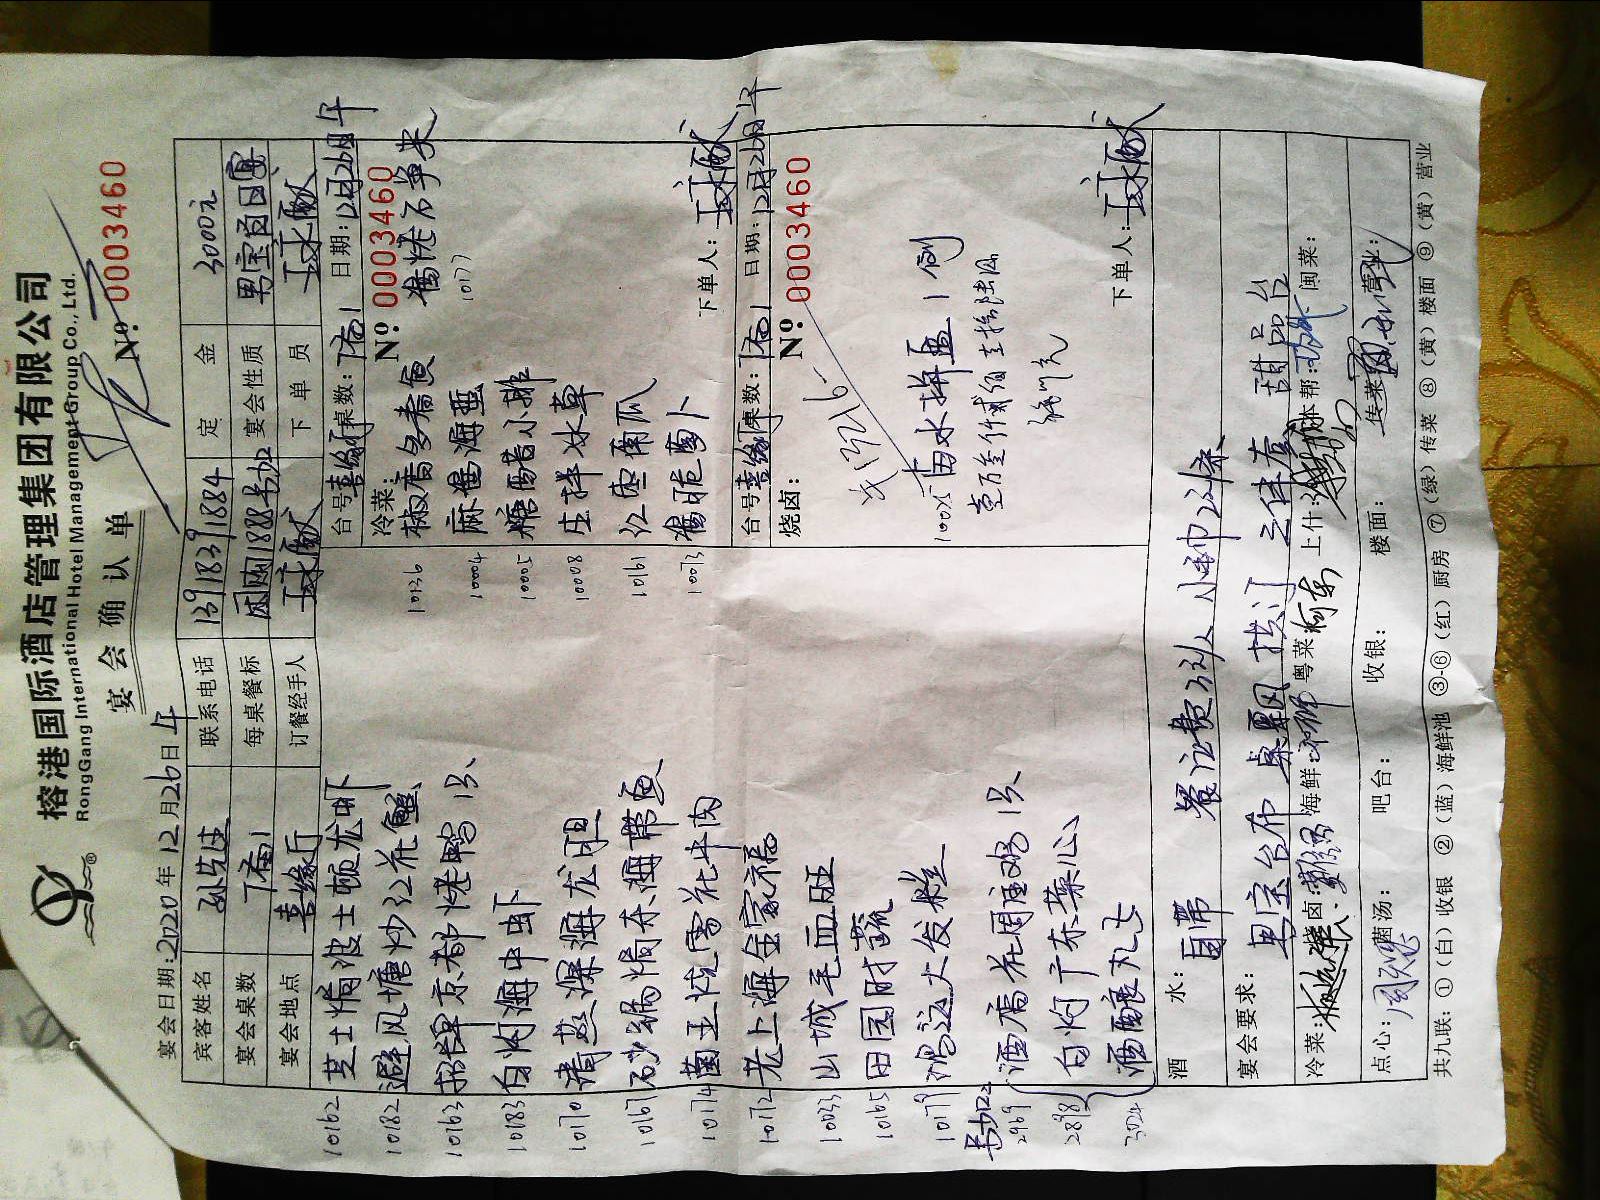 榕港国际酒店管理集团有限公司
RongGang International Hotel Management Group Co., Ltd.
宴会确认单
№ 0003460
宴会日期: 2020年12月26日午
宾客姓名 孙先生 联系电话 13918391884 定金 3000元
宴会桌数 1席 每桌餐标 1888 另加 宴会性质 男宝百日宴
宴会地点 喜缘厅 订餐经手人 下单员
10162 芝士焗波士顿龙虾
10182 避风塘炒红花蟹
10163 招牌京都烤鸭 1只
10183 白灼海中虾
10170 清蒸深海龙胆
10167 砂锅焗东海带鱼
10174 菌王炖雪花牛肉
10172 老上海全家福
10033 山城毛血旺
10165 田园时蔬
10179 鸿运大发糕
另加2
2969 酒店花园土鸡 1只
2898 白灼广东菜心
3024 酒酿丸子
台号: 喜缘厅 桌数: 1席 日期: 12月26日午
冷菜: № 0003460
10136 椒香多春鱼
10004 麻酱海蜇
10005 糖醋小排
10008 庄拌冰草
10161 红枣南瓜
10073 酱脆萝卜
10177
下单人:
台号: 喜缘厅 桌数: 1席 日期: 12月26日午
烧卤: № 0003460
卤水拼盘 1例
下单人:
酒水: 自带
宴会要求: 男宝台布 桌飘 拱门 三件套 甜品台
冷菜: 烧卤: 海鲜: 粤菜: 上什: 本帮: 闽菜:
点心: 菌汤: 吧台: 收银: 楼面: 传菜: 营业:
共九联: ①(白)收银 ②(蓝)海鲜池 ③-⑥(红)厨房 ⑦(绿)传菜 ⑧(黄)楼面 ⑨(黄)营业